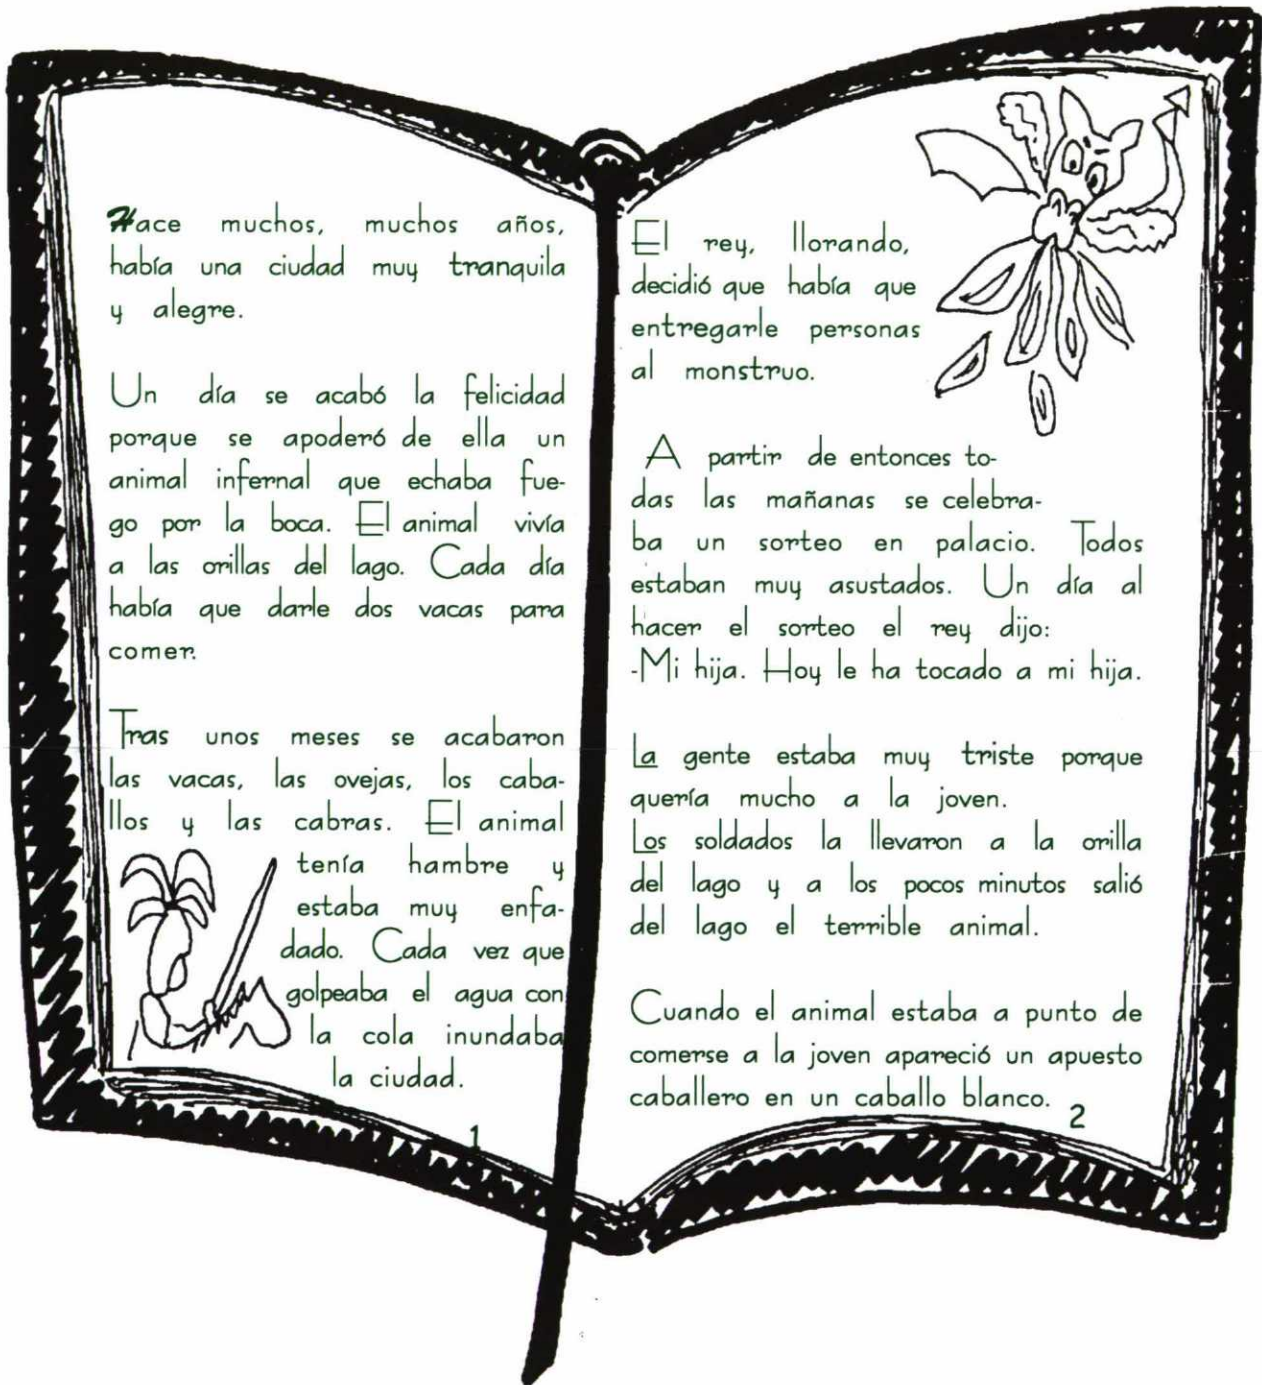 Hace muchos, muchos años,
había una ciudad muy tranquila
y alegre.
Un día se acabó la felicidad
porque se apoderó de ella un
animal infernal que echaba fue-
go por la boca. El animal vivía
a las orillas del lago. Cada día
había que darle dos vacas para
comer.
Tras unos meses se acabaron
las vacas, las ovejas, los caba-
llos y las cabras. El animal
tenía hambre y
estaba muy enfa-
dado. Cada vez que
golpeaba el agua con
la cola inundaba
la ciudad.
1
El rey, llorando,
decidió que había que
entregarle personas
al monstruo.
A partir de entonces to-
das las mañanas se celebra-
ba un sorteo en palacio. Todos
estaban muy asustados. Un día al
hacer el sorteo el rey dijo:
-Mi hija. Hoy le ha tocado a mi hija.
La gente estaba muy triste porque
quería mucho a la joven.
Los soldados la llevaron a la orilla
del lago y a los pocos minutos salió
del lago el terrible animal.
Cuando el animal estaba a punto de
comerse a la joven apareció un apuesto
caballero en un caballo blanco.
2